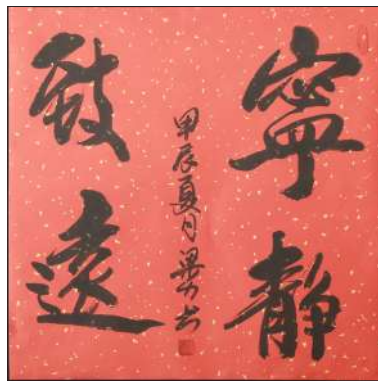 寧靜
致遠
甲辰夏月梁力书